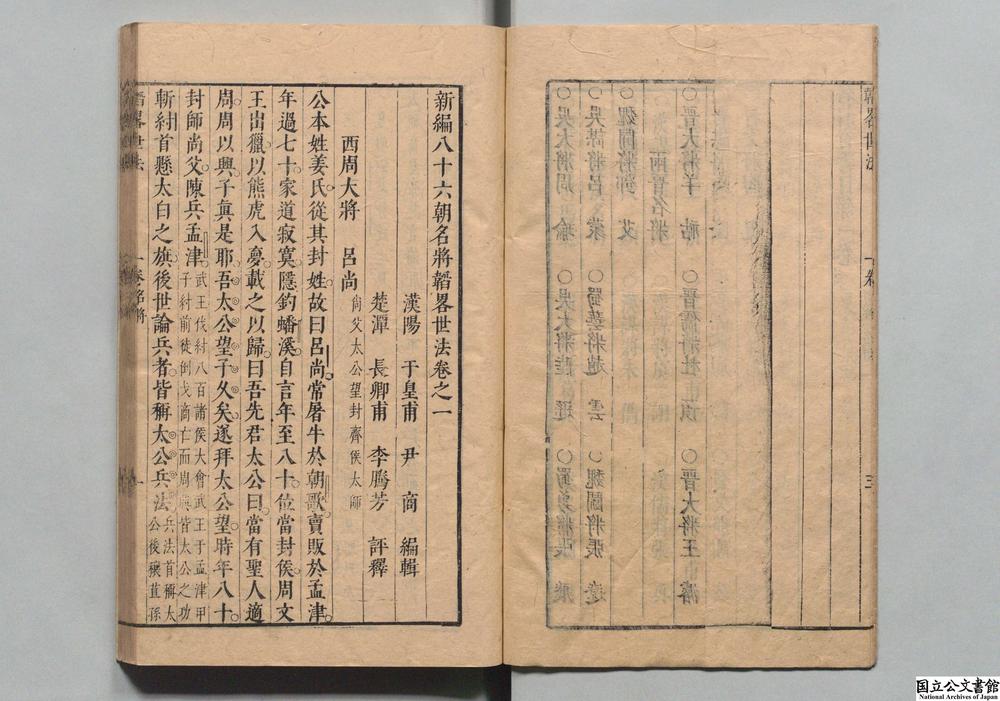 韜畧世法
卷
三
○晋大將羊 祜 ○晋儒將杜 預 ○晋大將王 濬
兩晋名將
○魏鬪將鄧 艾
○吳謀將呂 蒙 ○蜀藝將趙 雲 ○魏鬪將張 遼
○吳大將周 瑜 ○吳大將陸 遜 ○蜀勇將張 飛
新編八十六朝名將韜畧世法卷之一
漢陽 于皇甫 尹 商 編輯
楚潭 長卿甫 李騰芳 評釋
西周大將 呂尚 尙父太公望封齊侯太師
公本姓姜氏從其封姓故曰呂尚常屠牛於朝歌賣販於孟津
年過七十家道寂寞隱釣蟠溪自言年至八十位當封侯周文
王出獵以熊虎入夢載之以歸曰吾先君太公曰當有聖人適
周周以興子眞是耶吾太公望子久矣遂拜太公望時年八十
封師尚父陳兵孟津武王伐紂八百諸侯大會武王于孟津甲
子紂前徒倒戈商亡而周興皆太公之功
斬紂首懸太白之旗後世論兵者皆稱太公兵法兵法首稱太
公後穰苴孫
韜畧世法
一卷名將
一
国立公文書館
National Archives of Japan